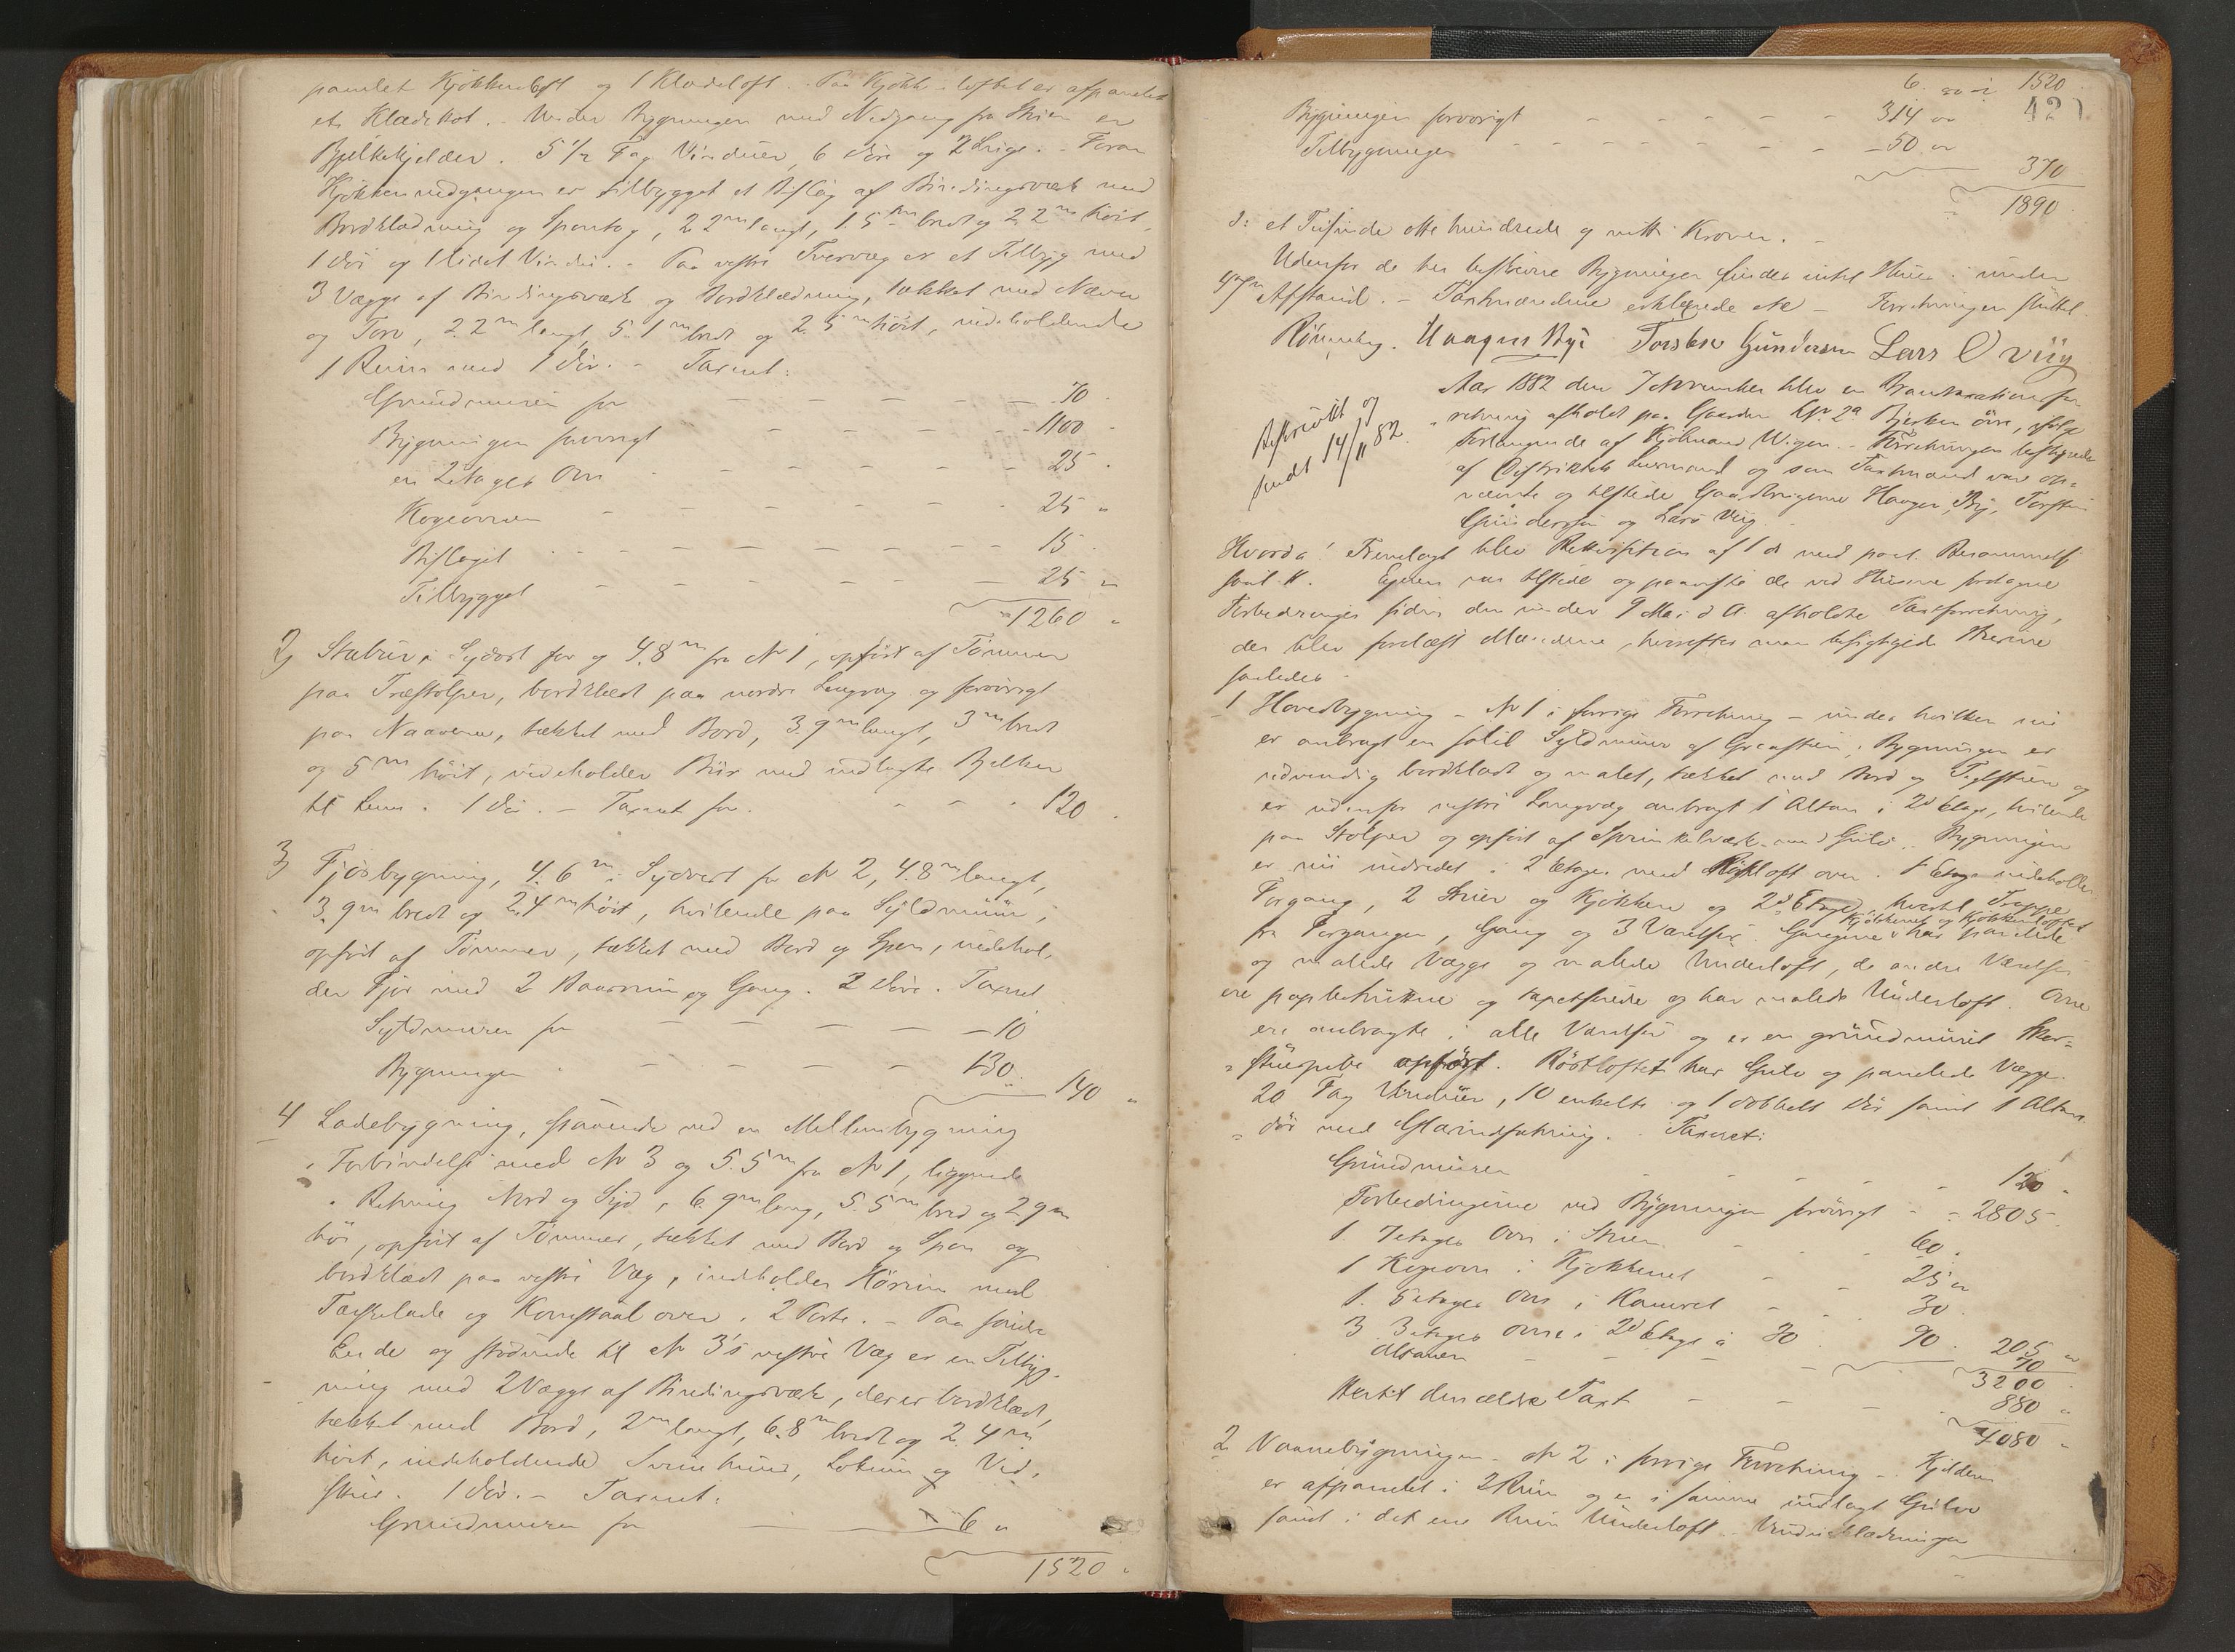 panelet Kjøkkenloft og 1 Klædeloft. Paa Kjøkk.loftet er afpanelet
et Klædekot. Under Bygningen med Nedgang fra Stuen er
Bjelkekjelder. 5 1/2 Fag Vinduer, 6 Døre og 2 Luger. - Foran
Kjøkkenindgangen er tilbygget et Bislag af Bindingsværk med
Bordklædning og Spontag, 2.2 m langt, 1.5 m bredt og 2.2 m høit,
1 Dør og 1 lidet Vindu. - Paa vestre Tvervæg er et Tilbyg med
3 Vægge af Bindingsværk og Bordklædning, tækket med Næver
og Torv, 2.2 m langt, 5.1 m bredt og 2.5 m høit, indeholdende
1 Rum med 1 Dør. - Taxeret:
Grundmuren for 70
Bygningen forøvrigt 1100
en 2 Etages Ovn 25
Kogeovnen 25 "
Bislaget 15
Tilbygget 25 "
1260 "
2) Stabur i Sydost for og 4.8 m fra No 1, opført af Tømmer
paa Træstolper, bordklædt paa nordre Langvæg og forøvrigt
paa Naaverne, tækket med Bord, 3.9 m langt, 3 m bredt
og 5 m høit, indeholder Bur med indlagte Bjelker
til Lem. 1 Dør. - Taxeret for 120
3) Fjøsbygning, 4.6 m i Sydvest for No 2, 4.8 m langt,
3.9 m bredt og 2.4 m høit, hvilende paa Syldmuur,
opført af Tømmer, tækket med Bord og Spon, indehol-
der Fjøs med 2 Baasrum og Gang. 2 Døre. Taxeret
Syldmuren for 10
Bygningen 130 "
140 "
4 Ladebygning, staaende ved en Mellembygning
i Forbindelse med No 3 og 5.5 m fra No 1, liggende
i Retning Nord og Syd, 6.9 m lang, 5.5 m bred og 2.9 m
høi, opført af Tømmer, tækket med Bord og Spon og
bordklædt paa vestre Væg, indeholder Hørum med
Tærskelade og Kornstaal over. 2 Porte. - Paa søndre
Ende og stødende til No 3's vestre Væg er en Tilbyg-
ning med 2 Vægge af Bindingsværk, der er bordklædt,
tækket med Bord, 2 m langt, 6.8 m bredt og 2.4 m
høit, indeholdende Svinehuus, Lokum og Ved-
skur. 1 Dør. - Taxeret:
Grundmuren for 6 "
1520 "
6. 1520
421
Bygningen forøvrigt 314 "
Tilbygningen 50 "
370
1890
d: et Tusinde otte hundrede og nitti Kroner. -
Udenfor de her beskrevne Bygninger findes intet Huus i under
Afstand. - Taxtmændene erklærede etc - Forretningen sluttet.
Haagen Bye Torsten Gundersen Lars Oviig
Beskrevet og
sendt 14/11 82.
Aar 1882 den 7 November blev en Brandtaxationsfor-
retning afholdt paa Gaarden Løpe No 2a Bjerken øvre, ifølge
Forlangende af Kjøbmand Wigen. - Forretningen bestyredes
af Distriktets Lensmand og som Taxtmænd vare op-
nævnte og tilstede Gaardbrugerne Haagen Bye, Torsten
Gundersen og Lars Viig.
Hvorda: Fremlagt blev Rekvisition af 1 ds med paat. Berammelse
saal. #. Eieren var tilstede og paaviste de ved Husene foretagne
Forbedringer siden den under 9 Mai d A. afholdte Taxtforretning,
der blev forelæst Mændene, hvorefter man besigtigede Husene
saaledes -
1 Hovedbygning - No 1 i forrige Forretning - under hvilken nu
er anbragt en solid Syldmuur af Graasteen; Bygningen er
udvendig bordklædt og malet, tækket med Bord og Taglsteen og
er udenfor vestre Langvæg anbragt 1 Altan i 2d Etage, hvilende
paa Stolper og opført af Sprinkelværk med Gulv. Bygningen
er nu indredet i 2 Etager med Røstloft over. 1 Etage indeholder
Forgang, 2 Stuer og Kjøkken og 2d Etage, hvortil Trappe
fra Forgangen, Gang og 3 Værelser. Gangene Kjøkkenet og Kjøkkenloftet har panelede
og malede Vægge og malede Underloft, de andre Værelser
ere papbetrukne og tapetserede og har malede Underloft. Ovne
ere anbragte i alle Værelser og er en grundmuret Skor-
stenspibe opført. Røstloftet har Gulv og panelede Vægge.
20 Fag Vinduer, 10 enkelte og 1 dobbelt Dør samt 1 Altan-
dør med Glasindfatning. Taxeret:
Grundmuren 120
Forbedringerne ved Bygningen forøvrigt 2805
1. 7 etages Ovn i Stuen 60.
1 Kogeovn i Kjøkkenet 25 "
1. 5 etages Ovn i Kameret 30.
3. 3 etages Ovne i 2d Etage à 30 90. 205 "
Altanen 70
3200
Hertil den ældre Taxt 880 "
4080 "
2. Vaaningsbygningen No 2 i forrige Forretning - Kjelderen
er afpanelet i 2 Rum og er i samme indlagt Gulve
samt i det ene Rum Underloft. Vindusklædningen